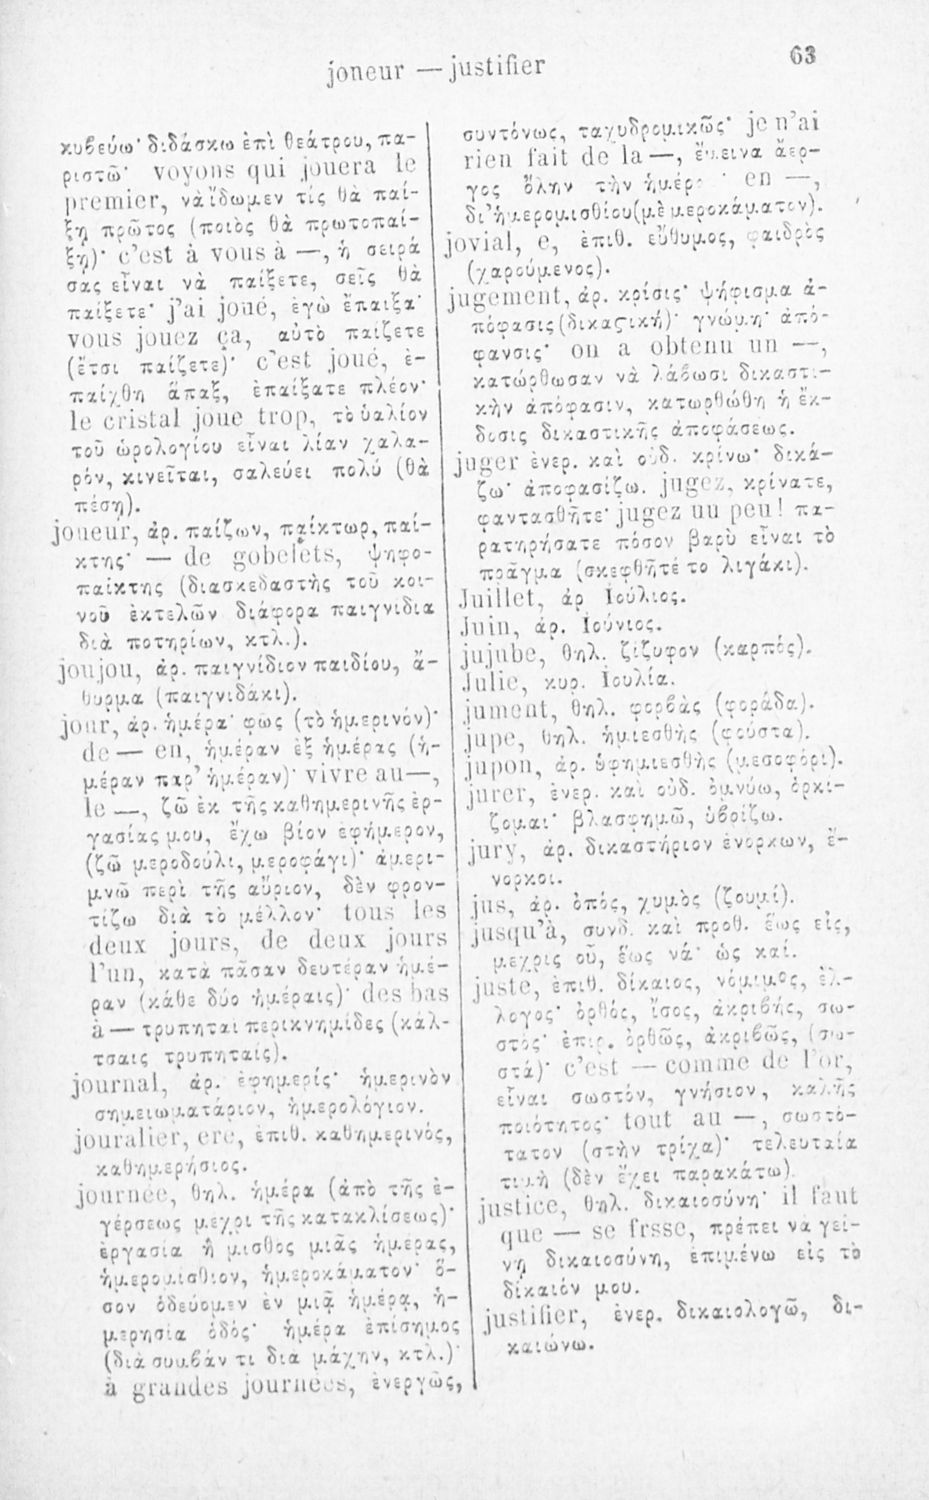 joneur — justifier
63
κυβεύω· διδάσκω ἐπὶ θεάτρου, πα-
ριστῶ· voyons qui jouera le
premier, νὰ ἴδωμεν τίς θὰ παί-
ξῃ πρῶτος (ποιὸς θὰ πρωτοπαί-
ξῃ)· c'est à vous à —, ἡ σειρά
σας εἶναι νὰ παίξετε, σεῖς θὰ
παίξετε· j'ai joué, ἐγὼ ἔπαιξα·
vous jouez ça, αὐτὸ παίζετε
(ἔτσι παίζετε)· c'est joué, ἐ-
παίχθη ἅπαξ, ἐπαίξατε πλέον·
le cristal joue trop, τὸ ὑαλίον
τοῦ ὡρολογίου εἶναι λίαν χαλα-
ρόν, κινεῖται, σαλεύει πολύ (θὰ
πέσῃ).
joueur, ἀρ. παίζων, παίκτωρ, παί-
κτης· — de gobelets, ψηφο-
παίκτης (διασκεδαστὴς τοῦ κοι-
νοῦ ἐκτελῶν διάφορα παιγνίδια
διὰ ποτηρίων, κτλ.).
joujou, ἀρ. παιγνίδιον παιδίου, ἄ-
θυρμα (παιγνιδάκι).
jour, ἀρ. ἡμέρα· φῶς (τὸ ἡμερινόν)·
de — en, ἡμέραν ἐξ ἡμέρας (ἡ-
μέραν παρ' ἡμέραν)· vivre au —,
le —, ζῶ ἐκ τῆς καθημερινῆς ἐρ-
γασίας μου, ἔχω βίον ἐφήμερον,
(ζῶ μεροδούλι, μεροφάγι)· ἀμερι-
μνῶ περὶ τῆς αὔριον, δὲν φρον-
τίζω διὰ τὸ μέλλον· tous les
deux jours, de deux jours
l'un, κατὰ πᾶσαν δευτέραν ἡμέ-
ραν (κάθε δύο ἡμέραις)· des bas
à — τρυπηταὶ περικνημίδες (κάλ-
τσαις τρυπηταίς).
journal, ἀρ. ἐφημερίς· ἡμερινὸν
σημειωματάριον, ἡμερολόγιον.
jouralier, ere, ἐπιθ. καθημερινός,
καθημερήσιος.
journée, θηλ. ἡμέρα (ἀπὸ τῆς ἐ-
γέρσεως μεχρι τῆς κατακλίσεως)·
ἐργασία ἢ μισθὸς μιᾶς ἡμέρας,
ἡμερομίσθιον, ἡμεροκάματον· ὅ-
σον ὁδεύομεν ἐν μιᾷ ἡμέρᾳ, ἡ-
μερησία ὁδός· ἡμέρα ἐπίσημος
(διὰ συμβάν τι διὰ μάχην, κτλ.)·
à grandes journées, ἐνεργῶς,
συντόνως, ταχυδρομικῶς· je n'ai
rien fait de la —, ἔμεινα ἄερ-
γος ὅλην τὴν ἡμέρ· en —,
δι' ἡμερομισθίου (μὲ μεροκάματον).
jovial, e, ἐπιθ. εὔθυμος, φαιδρὸς
(χαρούμενος).
jugement, ἀρ. κρίσις· ψήφισμα ἀ-
πόφασις (δικαστική)· γνώμη· ἀπό-
φανσις· on a obtenu un —,
κατώρθωσαν νὰ λάβωσι δικαστι-
κὴν ἀπόφασιν, κατωρθώθη ἡ ἔκ-
δοσις δικαστικῆς ἀποφάσεως.
juger ἐνερ. καὶ οὐδ. κρίνω· δικά-
ζω· ἀποφασίζω. jugez, κρίνατε,
φαντασθῆτε· jugez uu peu! πα-
ρατηρήσατε πόσον βαρὺ εἶναι τὸ
πρᾶγμα (σκεφθῆτέ το λιγάκι).
Juillet, ἀρ Ἰούλιος.
Juin, ἀρ. Ἰούνιος.
jujube, θηλ. ζίζυφον (καρπός).
Julie, κυρ. Ἰουλία.
jument, θηλ. φορβὰς (φοράδα).
jupe, θηλ. ἡμιεσθὴς (φούστα).
jupon, ἀρ. ὑφημιεσθὴς (μεσοφόρι).
jurer, ἐνερ. καὶ οὐδ. ὀμνύω, ὁρκί-
ζομαι· βλασφημῶ, ὑβρίζω.
jury, ἀρ. δικαστήριον ἐνόρκων, ἔ-
νορκοι.
jus, ἀρ. ὀπός, χυμὸς (ζουμί).
jusqu'à, συνδ. καὶ προθ. ἕως εἰς,
μεχρις οὗ, ἕως νά· ὡς καί.
juste, ἐπιθ. δίκαιος, νόμιμος, ἔλ-
λογος· ὀρθός, ἴσος, ἀκριβής, σω-
στός· ἐπιρ. ὀρθῶς, ἀκριβῶς, (σω-
στά)· c'est — comme de l'or,
εἶναι σωστόν, γνήσιον, καλῆς
ποιότητος· tout au —, σωστό-
τατον (στὴν τρίχα)· τελευταία
τιμὴ (δὲν ἔχει παρακάτω).
justice, θηλ. δικαιοσύνη· il faut
que — se frsse, πρέπει νὰ γεί-
νῃ δικαιοσύνη, ἐπιμένω εἰς τὸ
δίκαιόν μου.
justifier, ἐνερ. δικαιολογῶ, δι-
καιώνω.